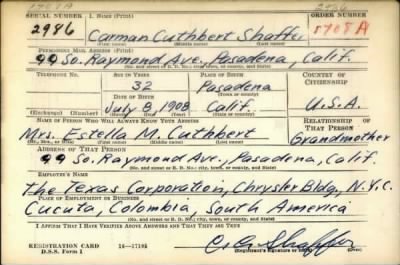 SERIAL NUMBER 1. NAME (Print) ORDER NUMBER
2986 Carman Cuthbert Shaffer 5708 A
(First name) (Middle name) (Last name)
PERMANENT MAIL ADDRESS (Print)
99 So. Raymond Ave., Pasadena, Calif.
(No. and street or R. D. No.; city, town, or county, and State)
TELEPHONE AGE IN YEARS PLACE OF BIRTH COUNTRY OF CITIZENSHIP
32 Pasadena
DATE OF BIRTH
July 8, 1908 Calif. U.S.A.
(Exchange) (Number) (Mo.) (Day) (Yr.) (State or country)
NAME OF PERSON WHO WILL ALWAYS KNOW YOUR ADDRESS RELATIONSHIP OF THAT PERSON
Mrs. Estella M. Cuthbert Grandmother
(Mr., Mrs., Miss) (First) (Middle) (Last name)
ADDRESS OF THAT PERSON
99 So. Raymond Ave., Pasadena, Calif.
(No. and street or R. D. No.; city, town, or county, and State)
EMPLOYER'S NAME
The Texas Corporation, Chrysler Bldg., N.Y.C.
PLACE OF EMPLOYMENT OR BUSINESS
Cucuta, Colombia, South America
(No. and street or R. D. No.; city, town, or county, and State)
I AFFIRM THAT I HAVE VERIFIED ABOVE ANSWERS AND THAT THEY ARE TRUE
REGISTRATION CARD 16—17105 C. C. Shaffer
D. S. S. Form 1 (Registrant's signature)